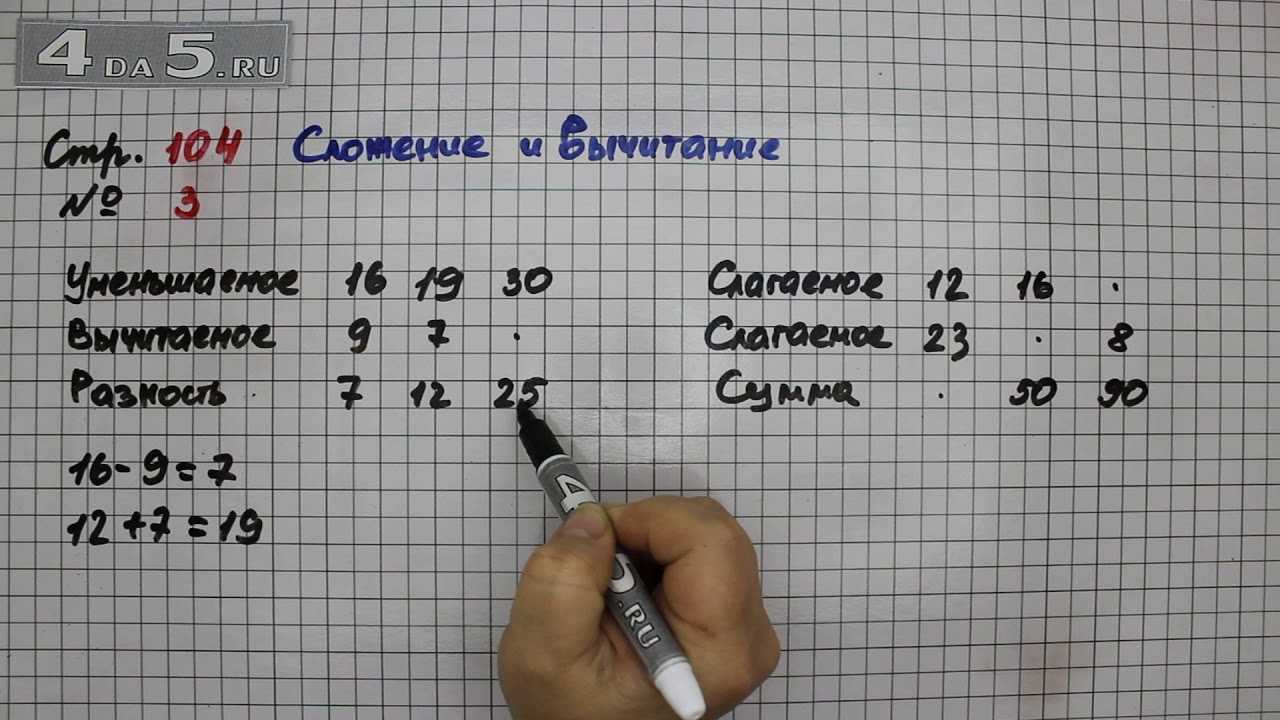 4DA5.RU
Стр. 104 Сложение и вычитание
№ 3
Уменьшаемое 16 19 30
Вычитаемое 9 7 .
Разность 7 12 25
16-9=7
12+7=19
Слагаемое 12 16 .
Слагаемое 23 . 8
Сумма . 50 90
.RU